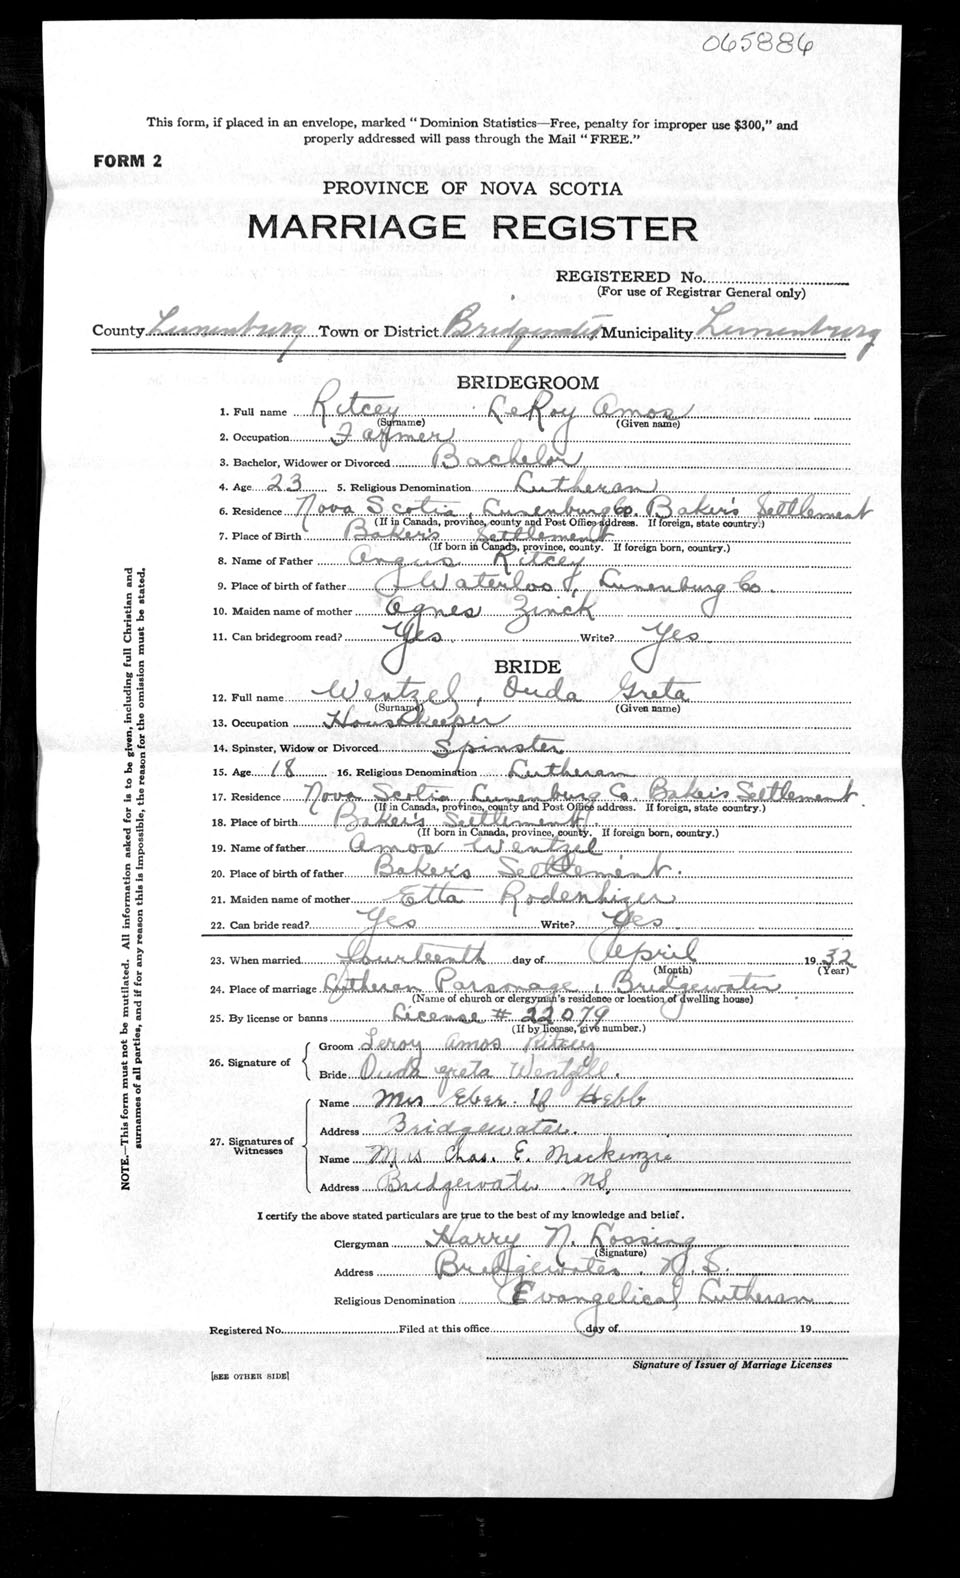 065886
This form, if placed in an envelope, marked "Dominion Statistics—Free, penalty for improper use $300," and
properly addressed will pass through the Mail "FREE."
FORM 2
PROVINCE OF NOVA SCOTIA
MARRIAGE REGISTER
REGISTERED No.
(For use of Registrar General only)
County Lunenburg Town or District Bridgewater Municipality Lunenburg
BRIDEGROOM
1. Full name Ritcey LeRoy Amos
(Surname) (Given name)
2. Occupation Farmer
3. Bachelor, Widower or Divorced Bachelor
4. Age 23 5. Religious Denomination Lutheran
6. Residence Nova Scotia, Lunenburg Co. Baker's Settlement
(If in Canada, province, county and Post Office address. If foreign, state country.)
7. Place of Birth Baker's Settlement
(If born in Canada, province, county. If foreign born, country.)
8. Name of Father Angus Ritcey
9. Place of birth of father Waterloo, Lunenburg Co.
10. Maiden name of mother Agnes Zinck
11. Can bridegroom read? Yes Write? Yes
BRIDE
12. Full name Wentzel, Ouda Greta
(Surname) (Given name)
13. Occupation Housekeeper
14. Spinster, Widow or Divorced Spinster
15. Age 18 16. Religious Denomination Lutheran
17. Residence Nova Scotia, Lunenburg Co. Baker's Settlement
(If in Canada, province, county and Post Office address. If foreign, state country.)
18. Place of birth Baker's Settlement
(If born in Canada, province, county. If foreign born, country.)
19. Name of father Amos Wentzel
20. Place of birth of father Baker's Settlement.
21. Maiden name of mother Etta Rodenhizer
22. Can bride read? Yes Write? Yes
23. When married fourteenth day of April 1932
(Month) (Year)
24. Place of marriage Lutheran Parsonage, Bridgewater
(Name of church or clergyman's residence or location of dwelling house)
25. By license or banns License # 22079
(If by license, give number.)
26. Signature of
Groom Leroy Amos Ritcey
Bride Ouda greta Wentzell.
27. Signatures of Witnesses
Name Mrs Eber Hebb
Address Bridgewater.
Name Mrs Chas. E. Mackenzie
Address Bridgewater NS.
I certify the above stated particulars are true to the best of my knowledge and belief.
Clergyman Harry N. Lossing
(Signature)
Address Bridgewater, N.S.
Religious Denomination Evangelical Lutheran
Registered No. Filed at this office day of 19
Signature of Issuer of Marriage Licenses
[SEE OTHER SIDE]
NOTE.—This form must not be mutilated. All information asked for is to be given, including full Christian and
surnames of all parties, and if for any reason this is impossible, the reason for the omission must be stated.